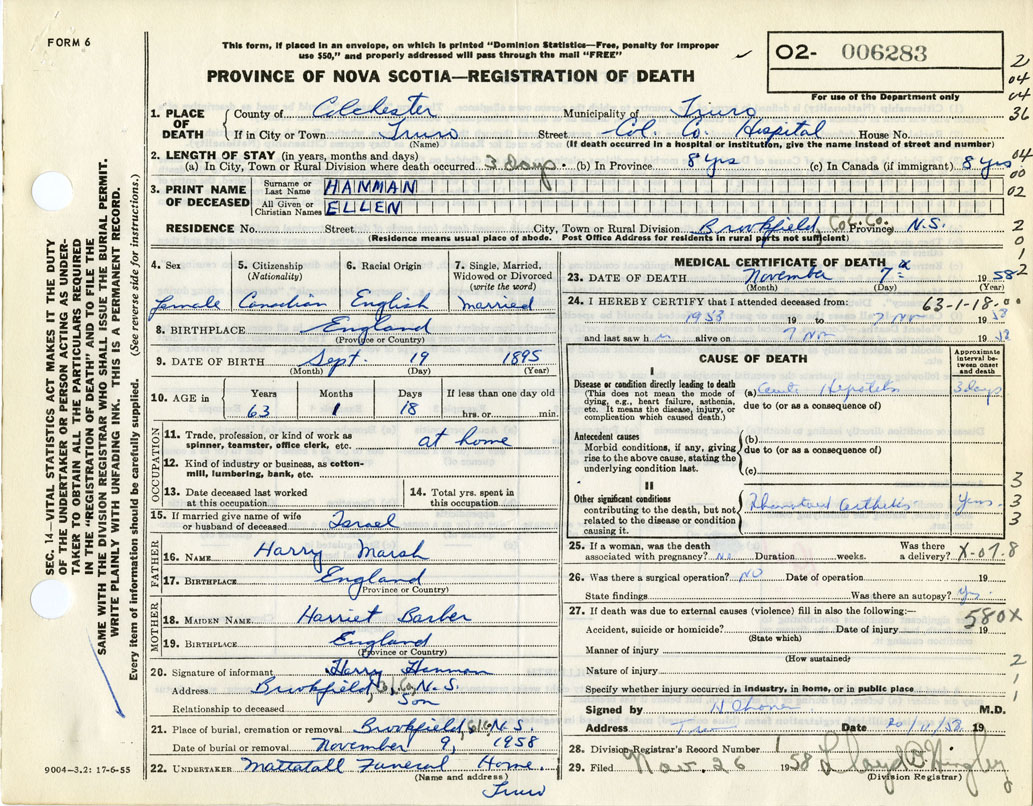 FORM 6
This form, if placed in an envelope, on which is printed "Dominion Statistics—Free, penalty for improper
use $50," and properly addressed will pass through the mail "FREE"
O2- 006283
For use of the Department only
PROVINCE OF NOVA SCOTIA—REGISTRATION OF DEATH
2
04
04
36
04
00
02
2
0
1
2
SEC. 14—VITAL STATISTICS ACT MAKES IT THE DUTY
OF THE UNDERTAKER OR PERSON ACTING AS UNDER-
TAKER TO OBTAIN ALL THE PARTICULARS REQUIRED
IN THE "REGISTRATION OF DEATH" AND TO FILE THE
SAME WITH THE DIVISION REGISTRAR WHO SHALL ISSUE THE BURIAL PERMIT.
WRITE PLAINLY WITH UNFADING INK. THIS IS A PERMANENT RECORD.
Every item of information should be carefully supplied. (See reverse side for instructions.)
1. PLACE OF DEATH
County of Colchester Municipality of Truro
If in City or Town Truro Street Col. Co. Hospital House No.
(Name) (If death occurred in a hospital or institution, give the name instead of street and number)
2. LENGTH OF STAY (in years, months and days)
(a) In City, Town or Rural Division where death occurred 3 Days (b) In Province 8 Yrs (c) In Canada (if immigrant) 8 Yrs
3. PRINT NAME OF DECEASED
Surname or Last Name HANMAN
All Given or Christian Names ELLEN
RESIDENCE No. Street City, Town or Rural Division Brookfield, Col. Co. Province N.S.
(Residence means usual place of abode. Post Office Address for residents in rural parts not sufficient)
4. Sex
female
5. Citizenship (Nationality)
Canadian
6. Racial Origin
English
7. Single, Married, Widowed or Divorced (write the word)
married
8. BIRTHPLACE England
(Province or Country)
9. DATE OF BIRTH Sept. 19 1895
(Month) (Day) (Year)
10. AGE in Years Months Days If less than one day old
63 1 18 hrs. or min.
OCCUPATION
11. Trade, profession, or kind of work as spinner, teamster, office clerk, etc. at home
12. Kind of industry or business, as cotton-mill, lumbering, bank, etc.
13. Date deceased last worked at this occupation
14. Total yrs. spent in this occupation
15. If married give name of wife or husband of deceased Israel
FATHER
16. NAME Harry Marsh
17. BIRTHPLACE England
(Province or Country)
MOTHER
18. MAIDEN NAME Harriet Barber
19. BIRTHPLACE England
(Province or Country)
20. Signature of informant Harry Hanman
Address Brookfield, Col. Co. N.S.
Relationship to deceased Son
21. Place of burial, cremation or removal Brookfield, Col. Co. N.S.
Date of burial or removal November 9, 1958
22. UNDERTAKER Mattatall Funeral Home.
(Name and address)
Truro
9004—3.2: 17-6-55
MEDICAL CERTIFICATE OF DEATH
23. DATE OF DEATH November 7 1958
(Month) (Day) (Year)
24. I HEREBY CERTIFY that I attended deceased from: 63-1-18
1953 19 to 7 Nov 1958
and last saw h alive on 7 Nov 1958
CAUSE OF DEATH
Approximate interval between onset and death
I
Disease or condition directly leading to death
(This does not mean the mode of dying, e.g., heart failure, asthenia, etc. It means the disease, injury, or complication which caused death.)
(a) Hepatitis 3 days
due to (or as a consequence of)
Antecedent causes
Morbid conditions, if any, giving rise to the above cause, stating the underlying condition last.
(b)
due to (or as a consequence of)
(c)
II
Other significant conditions
contributing to the death, but not related to the disease or condition causing it.
Rheumatoid arthritis yrs.
3
3
3
25. If a woman, was the death associated with pregnancy? No Duration weeks. Was there a delivery? X-07.8
26. Was there a surgical operation? NO Date of operation 19
State findings Was there an autopsy? Yes.
27. If death was due to external causes (violence) fill in also the following:—
580X
Accident, suicide or homicide? Date of injury 19
(State which)
Manner of injury
(How sustained)
Nature of injury
Specify whether injury occurred in industry, in home, or in public place
2
1
1
Signed by M.D.
Address Truro Date 19
28. Division Registrar's Record Number 1
29. Filed Nov. 26 1958
(Division Registrar)